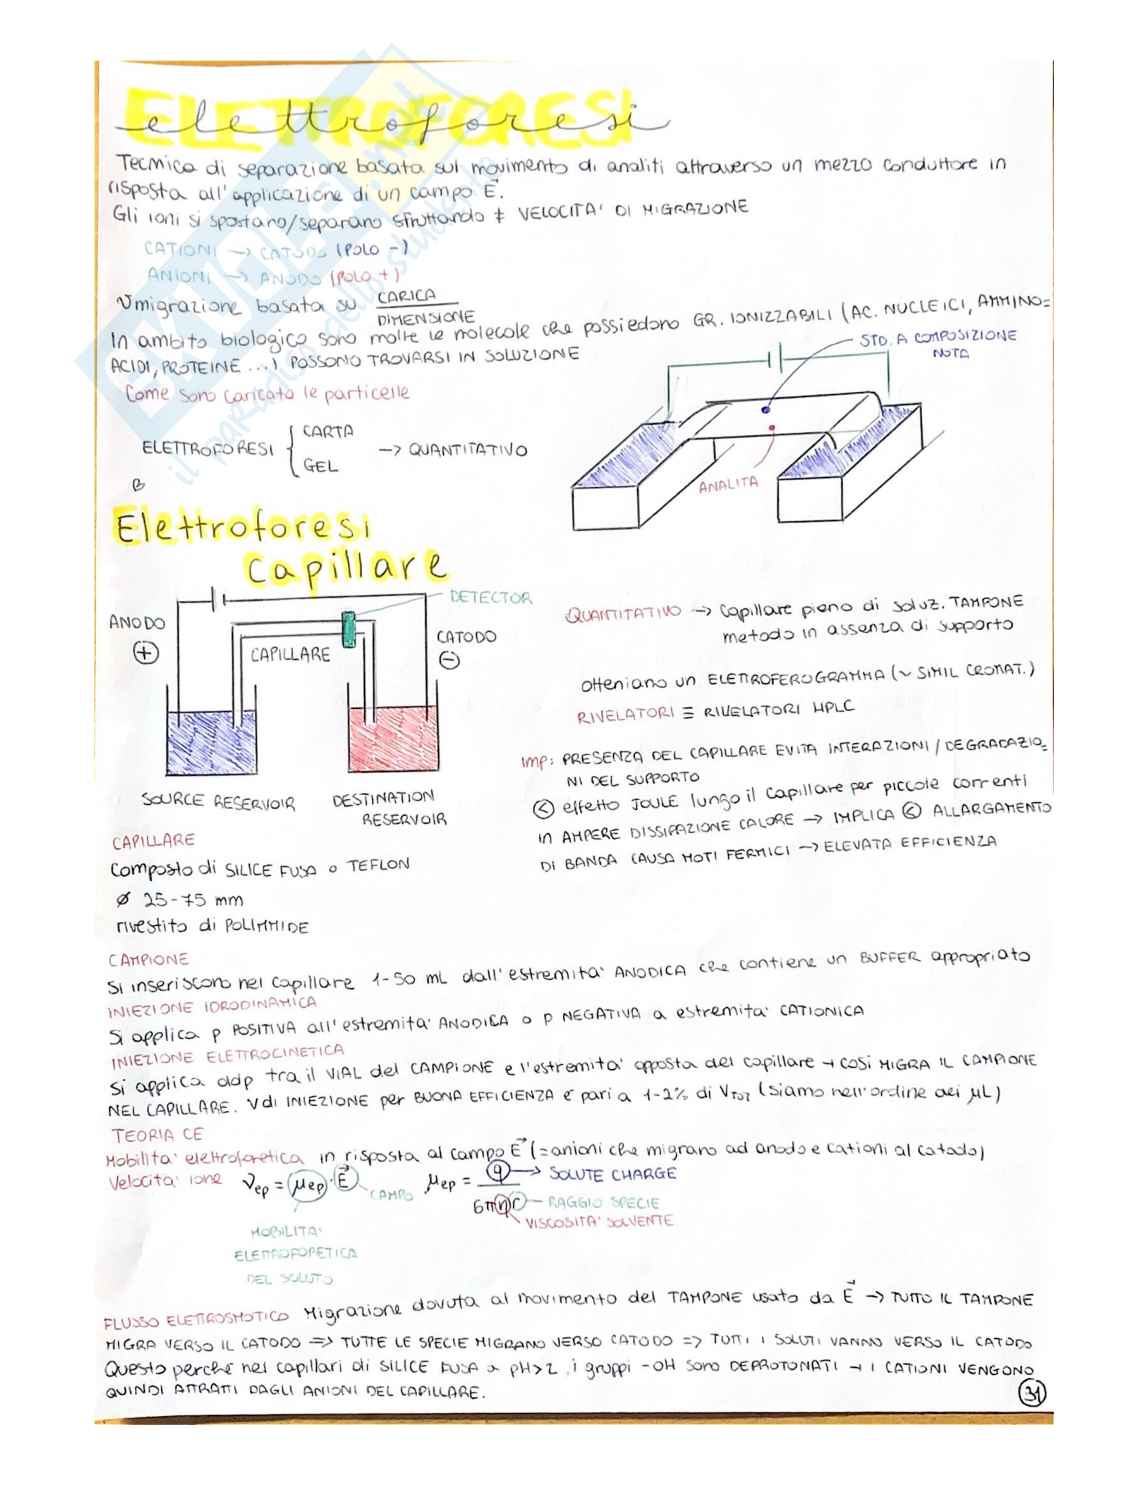 elettroforesi
Tecnica di separazione basata sul movimento di analiti attraverso un mezzo conduttore in
risposta all'applicazione di un campo E⃗.
Gli ioni si spostano/separano sfruttando ≠ VELOCITA' DI MIGRAZIONE
CATIONI → CATODO (POLO -)
ANIONI → ANODO (POLO +)
Vmigrazione basata su CARICA / DIMENSIONE
In ambito biologico sono molte le molecole che possiedono GR. IONIZZABILI (AC. NUCLEICI, AMMINO=
ACIDI, PROTEINE ...) POSSONO TROVARSI IN SOLUZIONE
Come sono caricate le particelle
ELETTROFORESI { CARTA
GEL
→ QUANTITATIVO
STD. A COMPOSIZIONE
NOTA
ANALITA
Elettroforesi
Capillare
ANODO
+
DETECTOR
CAPILLARE
CATODO
-
SOURCE RESERVOIR
DESTINATION
RESERVOIR
QUANTITATIVO → Capillare pieno di soluz. TAMPONE
metodo in assenza di supporto
otteniano un ELETTROFEROGRAMMA (~ SIMIL CROMAT.)
RIVELATORI ≡ RIVELATORI HPLC
Imp: PRESENZA DEL CAPILLARE EVITA INTERAZIONI / DEGRADAZIO=
NI DEL SUPPORTO
< effetto JOULE lungo il capillare per piccole correnti
in AMPERE DISSIPAZIONE CALORE → IMPLICA < ALLARGAMENTO
DI BANDA CAUSA MOTI TERMICI → ELEVATA EFFICIENZA
CAPILLARE
Composto di SILICE FUSA o TEFLON
Ø 25-75 mm
rivestito di POLIMMIDE
CAMPIONE
Si inseriscono nel capillare 1-50 mL dall'estremita' ANODICA che contiene un BUFFER appropriato
INIEZIONE IDRODINAMICA
Si applica p POSITIVA all'estremita' ANODICA o p NEGATIVA a estremita' CATIONICA
INIEZIONE ELETTROCINETICA
Si applica ddp tra il VIAL del CAMPIONE e l'estremita' opposta del capillare → COSI MIGRA IL CAMPIONE
NEL CAPILLARE. V di INIEZIONE per BUONA EFFICIENZA e' pari a 1-2% di VTOT (siamo nell'ordine dei μL)
TEORIA CE
Mobilita' elettroforetica in risposta al campo E⃗ (=anioni che migrano ad anodo e cationi al catodo)
Velocita' ione νep = μep · E⃗ CAMPO μep = q / 6πηr
SOLUTE CHARGE
RAGGIO SPECIE
VISCOSITA' SOLVENTE
MOBILITA'
ELETTROFORETICA
DEL SOLUTO
FLUSSO ELETTROSMOTICO Migrazione dovuta al movimento del TAMPONE usato da E⃗ → TUTTO IL TAMPONE
MIGRA VERSO IL CATODO => TUTTE LE SPECIE MIGRANO VERSO CATODO => TUTTI I SOLUTI VANNO VERSO IL CATODO
Questo perche nei capillari di SILICE FUSA a pH>2, i gruppi -OH sono DEPROTONATI → I CATIONI VENGONO
QUINDI ATTRATI DAGLI ANIONI DEL CAPILLARE.
31